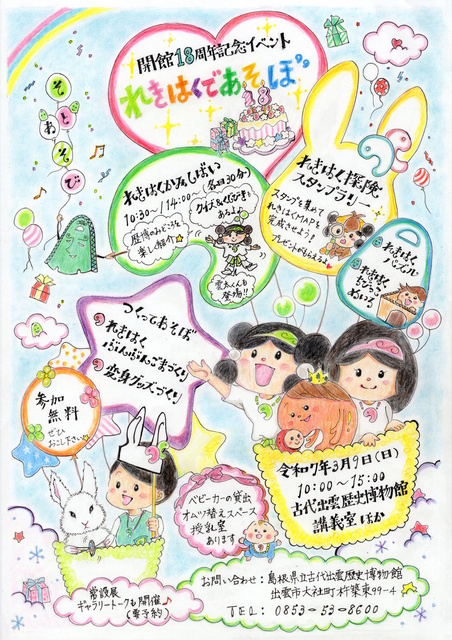 開館18周年記念イベント
れきはくであそぼ
18
そ
と
あ
そ
び
れきはくかみしばい
10:30~14:00~(各回30分)
クイズ&くじびき
もあるよ
歴博のみどころを
楽しく紹介
雲太くんも
登場!!
れきはく探険
スタンプラリー
スタンプを集めて
れきはくMAPを
完成させよう!
プレゼントがもらえるよ
れきはく
パズル
れきはく
もちこみ
つくってあそぼ
れきはく
ぶんぶんごまづくり
変身グッズづくり
参加
無料
ぜひ
おこし下さい
令和7年3月9日(日)
10:00~15:00
古代出雲歴史博物館
講義室ほか
ベビーカーの貸出
オムツ替えスペース
授乳室
あります
常設展
ギャラリートークも開催
(要予約)
お問い合わせ:島根県立古代出雲歴史博物館
出雲市大社町杵築東99-4
TEL: 0853-53-8600